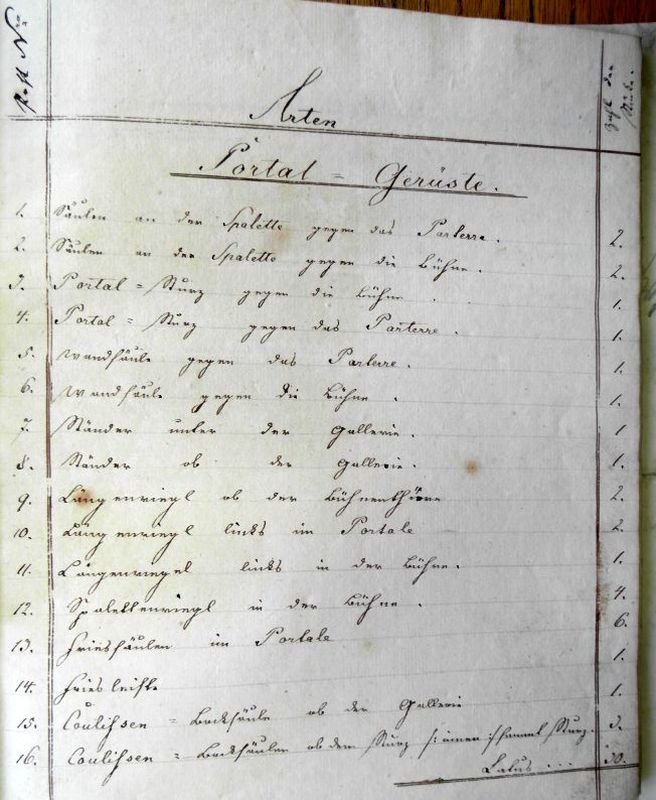 Post Nro
Arten
Zahl der Stücke.
Portal = Gerüste.
1. Säulen an der Spalette gegen das Parterre. 2.
2. Säulen an der Spalette gegen die Bühne. 2.
3. Portal = Sturz gegen die Bühne. 1.
4. Portal = Sturz gegen das Parterre. 1.
5. Wandsäule gegen das Parterre. 1.
6. Wandsäule gegen die Bühne. 1.
7. Ständer unter der Gallerie. 1
8. Ständer ob der Gallerie. 1.
9. Längenriegl ob der Bühnenthüre 2.
10. Längenriegl links im Portale 2.
11. Längenriegel links in der Bühne. 1.
12. Spalettenriegl in der Bühne. 4.
13. Friessäulen im Portale 6.
14. Friesleiste 1.
15. Coulissen = Bocksäule ob der Gallerie 1.
16. Coulissen = Bocksäulen ob dem Sturz Sturz. 3.
Latus ... 30.